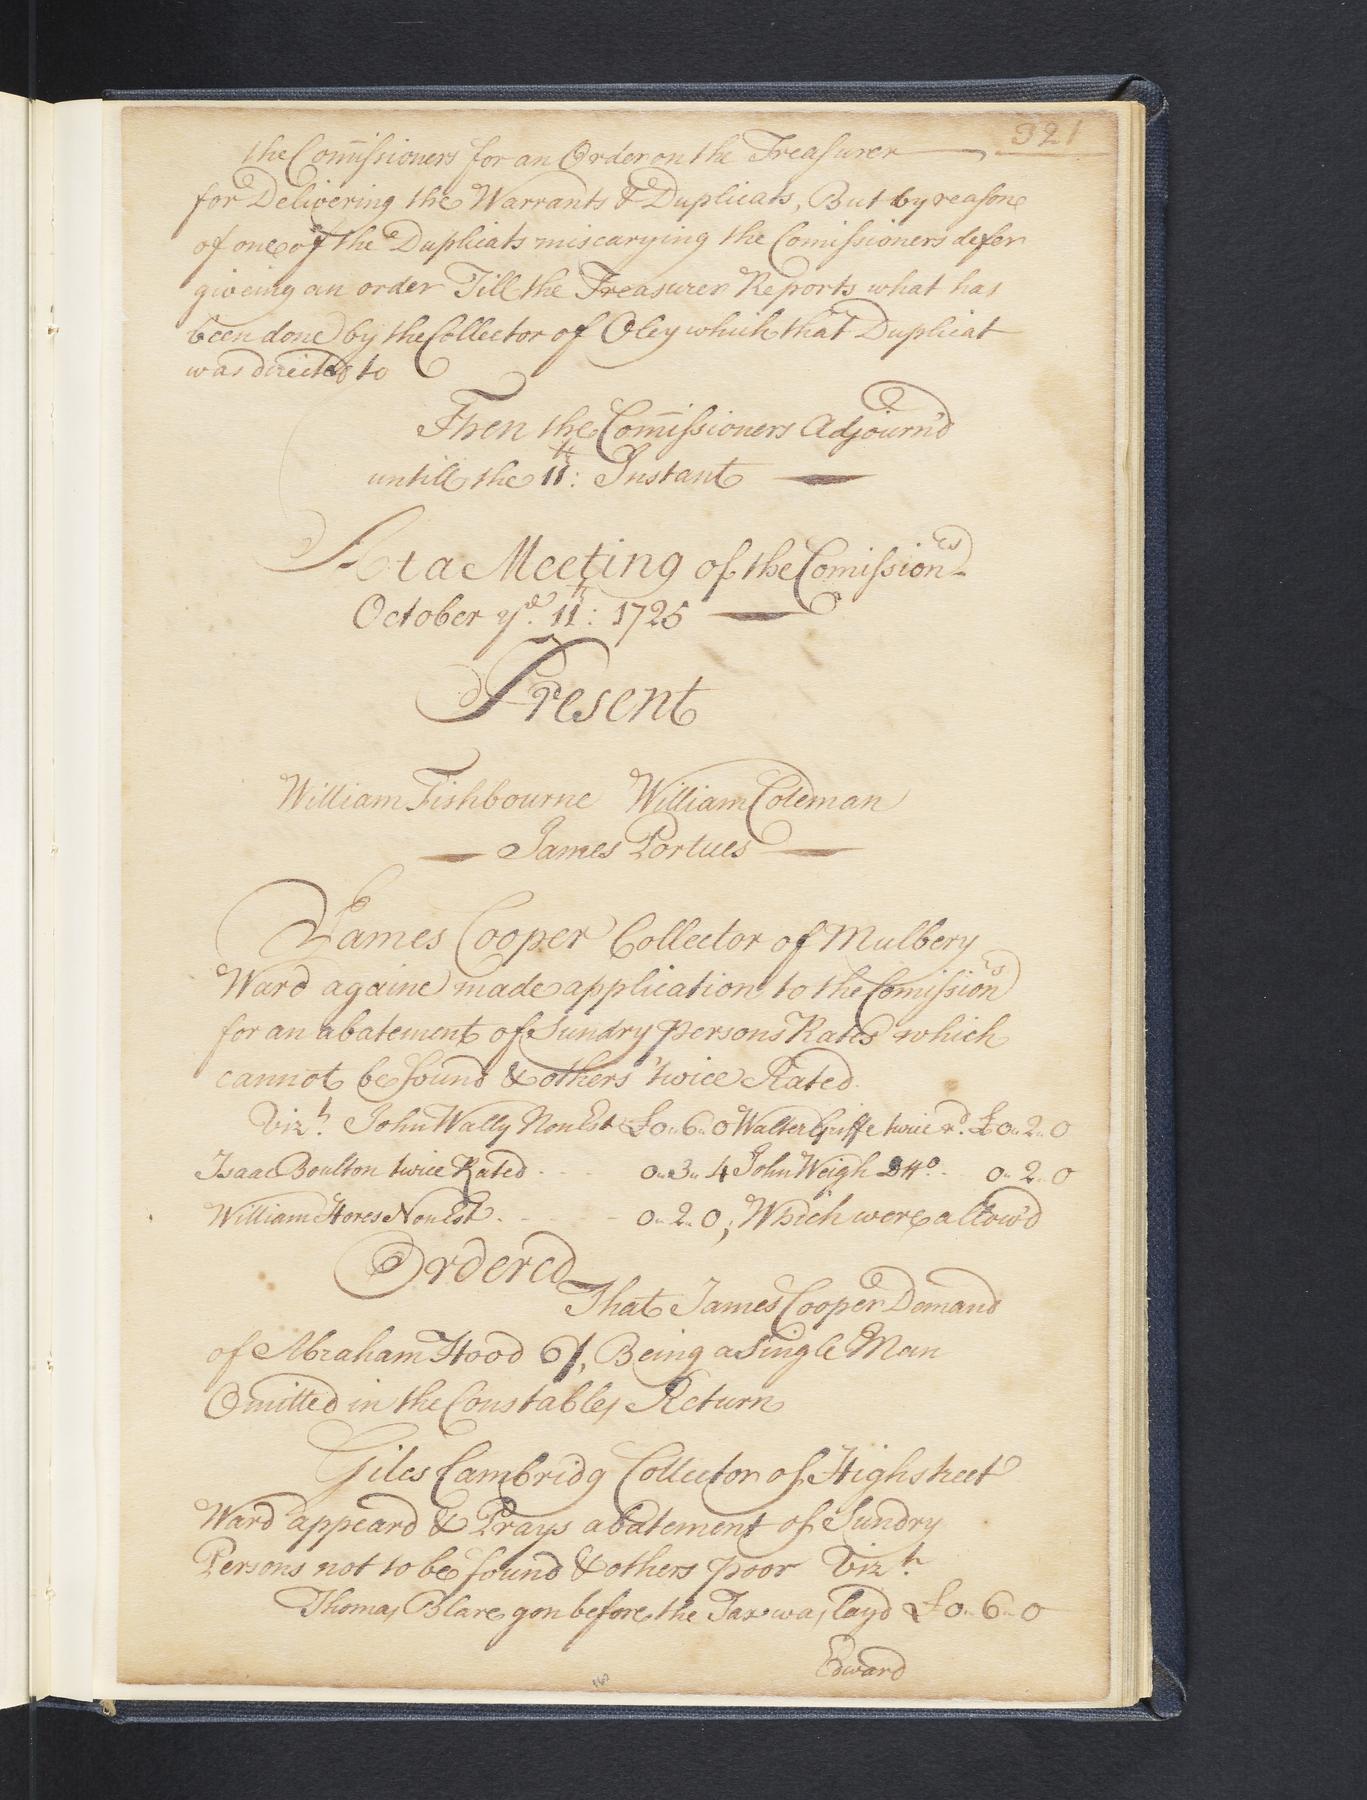 321
the Com̄issioners for an Order on the Treasurer
for Delivering the Warrants & Duplicats, But by reasone
of one of the Duplicats miscarying the Comissioners defer
giveing an order Till the Treasurer Reports what has
been done by the Collector of Oley which that Duplicat
was directed to
Then the Com̄issioners Adjourn'd
untill the 11th: Instant
At a Meeting of the Comissionrs
October ye. 11th: 1725
Present
William Fishbourne William Coleman
James Portues
James Cooper Collector of Mulbery
Ward againe made application to the Comissionrs
for an abatement of Sundry persons Rates which
cannot be found & others twice Rated
Vizt. John Wally Non Est £0..6..0 Walter Griffe twice rd. £0..2..0
Isaac Boulton twice Rated - - - 0..3..4 John Weigh Ditto. 0..2..0
William Hores Non Est. - - - - 0..2..0; Which were allow'd
Ordered
That James Cooper Demand
of Abraham Hood 6/, Being a Single Man
Omitted in the Constables Return
Giles Cambridg Collector of Highstreet
Ward appeard & Prays abatement of Sundry
Persons not to be found & others poor Vizt.
Thomas Blare gon before the Tax was layd £0..6..0
Edward